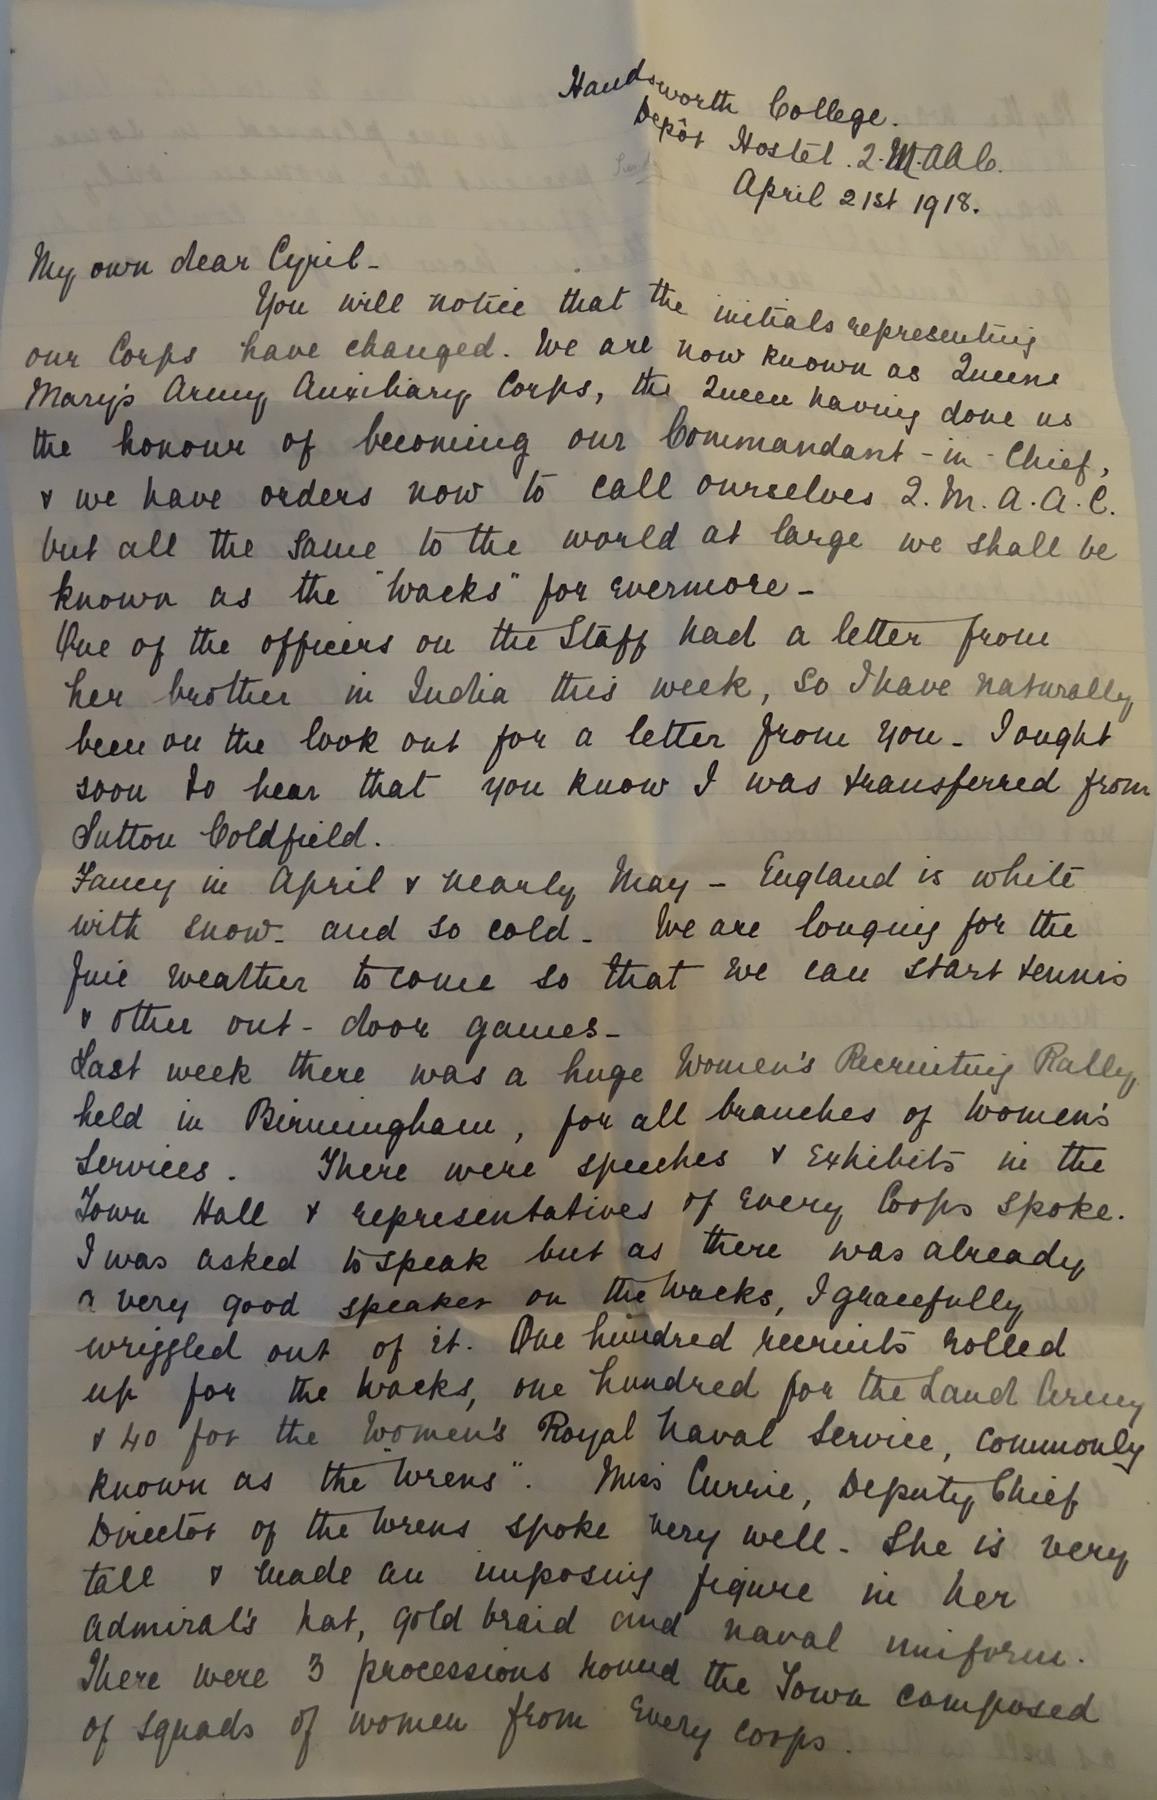 Handsworth College.
Depôt Hostel. Q.M.A.A.C.
April 21st 1918.
My own dear Cyril -
You will notice that the initials representing
our Corps have changed. We are now known as Queens
Mary's Army Auxiliary Corps, the Queen having done us
the honour of becoming our Commandant-in-Chief,
& we have orders now to call ourselves Q.M.A.A.C.
but all the same to the world at large we shall be
known as the "Waacks" for evermore -
One of the officers on the Staff had a letter from
her brother in India this week, so I have naturally
been on the look out for a letter from you - I ought
soon to hear that you know I was transferred from
Sutton Coldfield.
Fancy in April & nearly May - England is white
with snow - and so cold - We are longing for the
fine weather to come so that we can start tennis
& other out-door games -
Last week there was a huge Women's Recruiting Rally
held in Birmingham, for all branches of Women's
Services. There were speeches & Exhibits in the
Town Hall & representatives of Every Coops spoke.
I was asked to speak but as there was already
a very good speaker on the Waacks, I gracefully
wriggled out of it. One hundred recruits rolled
up for the Waacks, one hundred for the Land Army
& 40 for the Women's Royal Naval Service, commonly
known as the "Wrens". Miss Currie, Deputy Chief
Director of the Wrens spoke very well - She is very
tall & made an imposing figure in her
Admiral's hat, gold braid and naval uniform.
There were 3 processions round the Town composed
of squads of women from Every Coops.